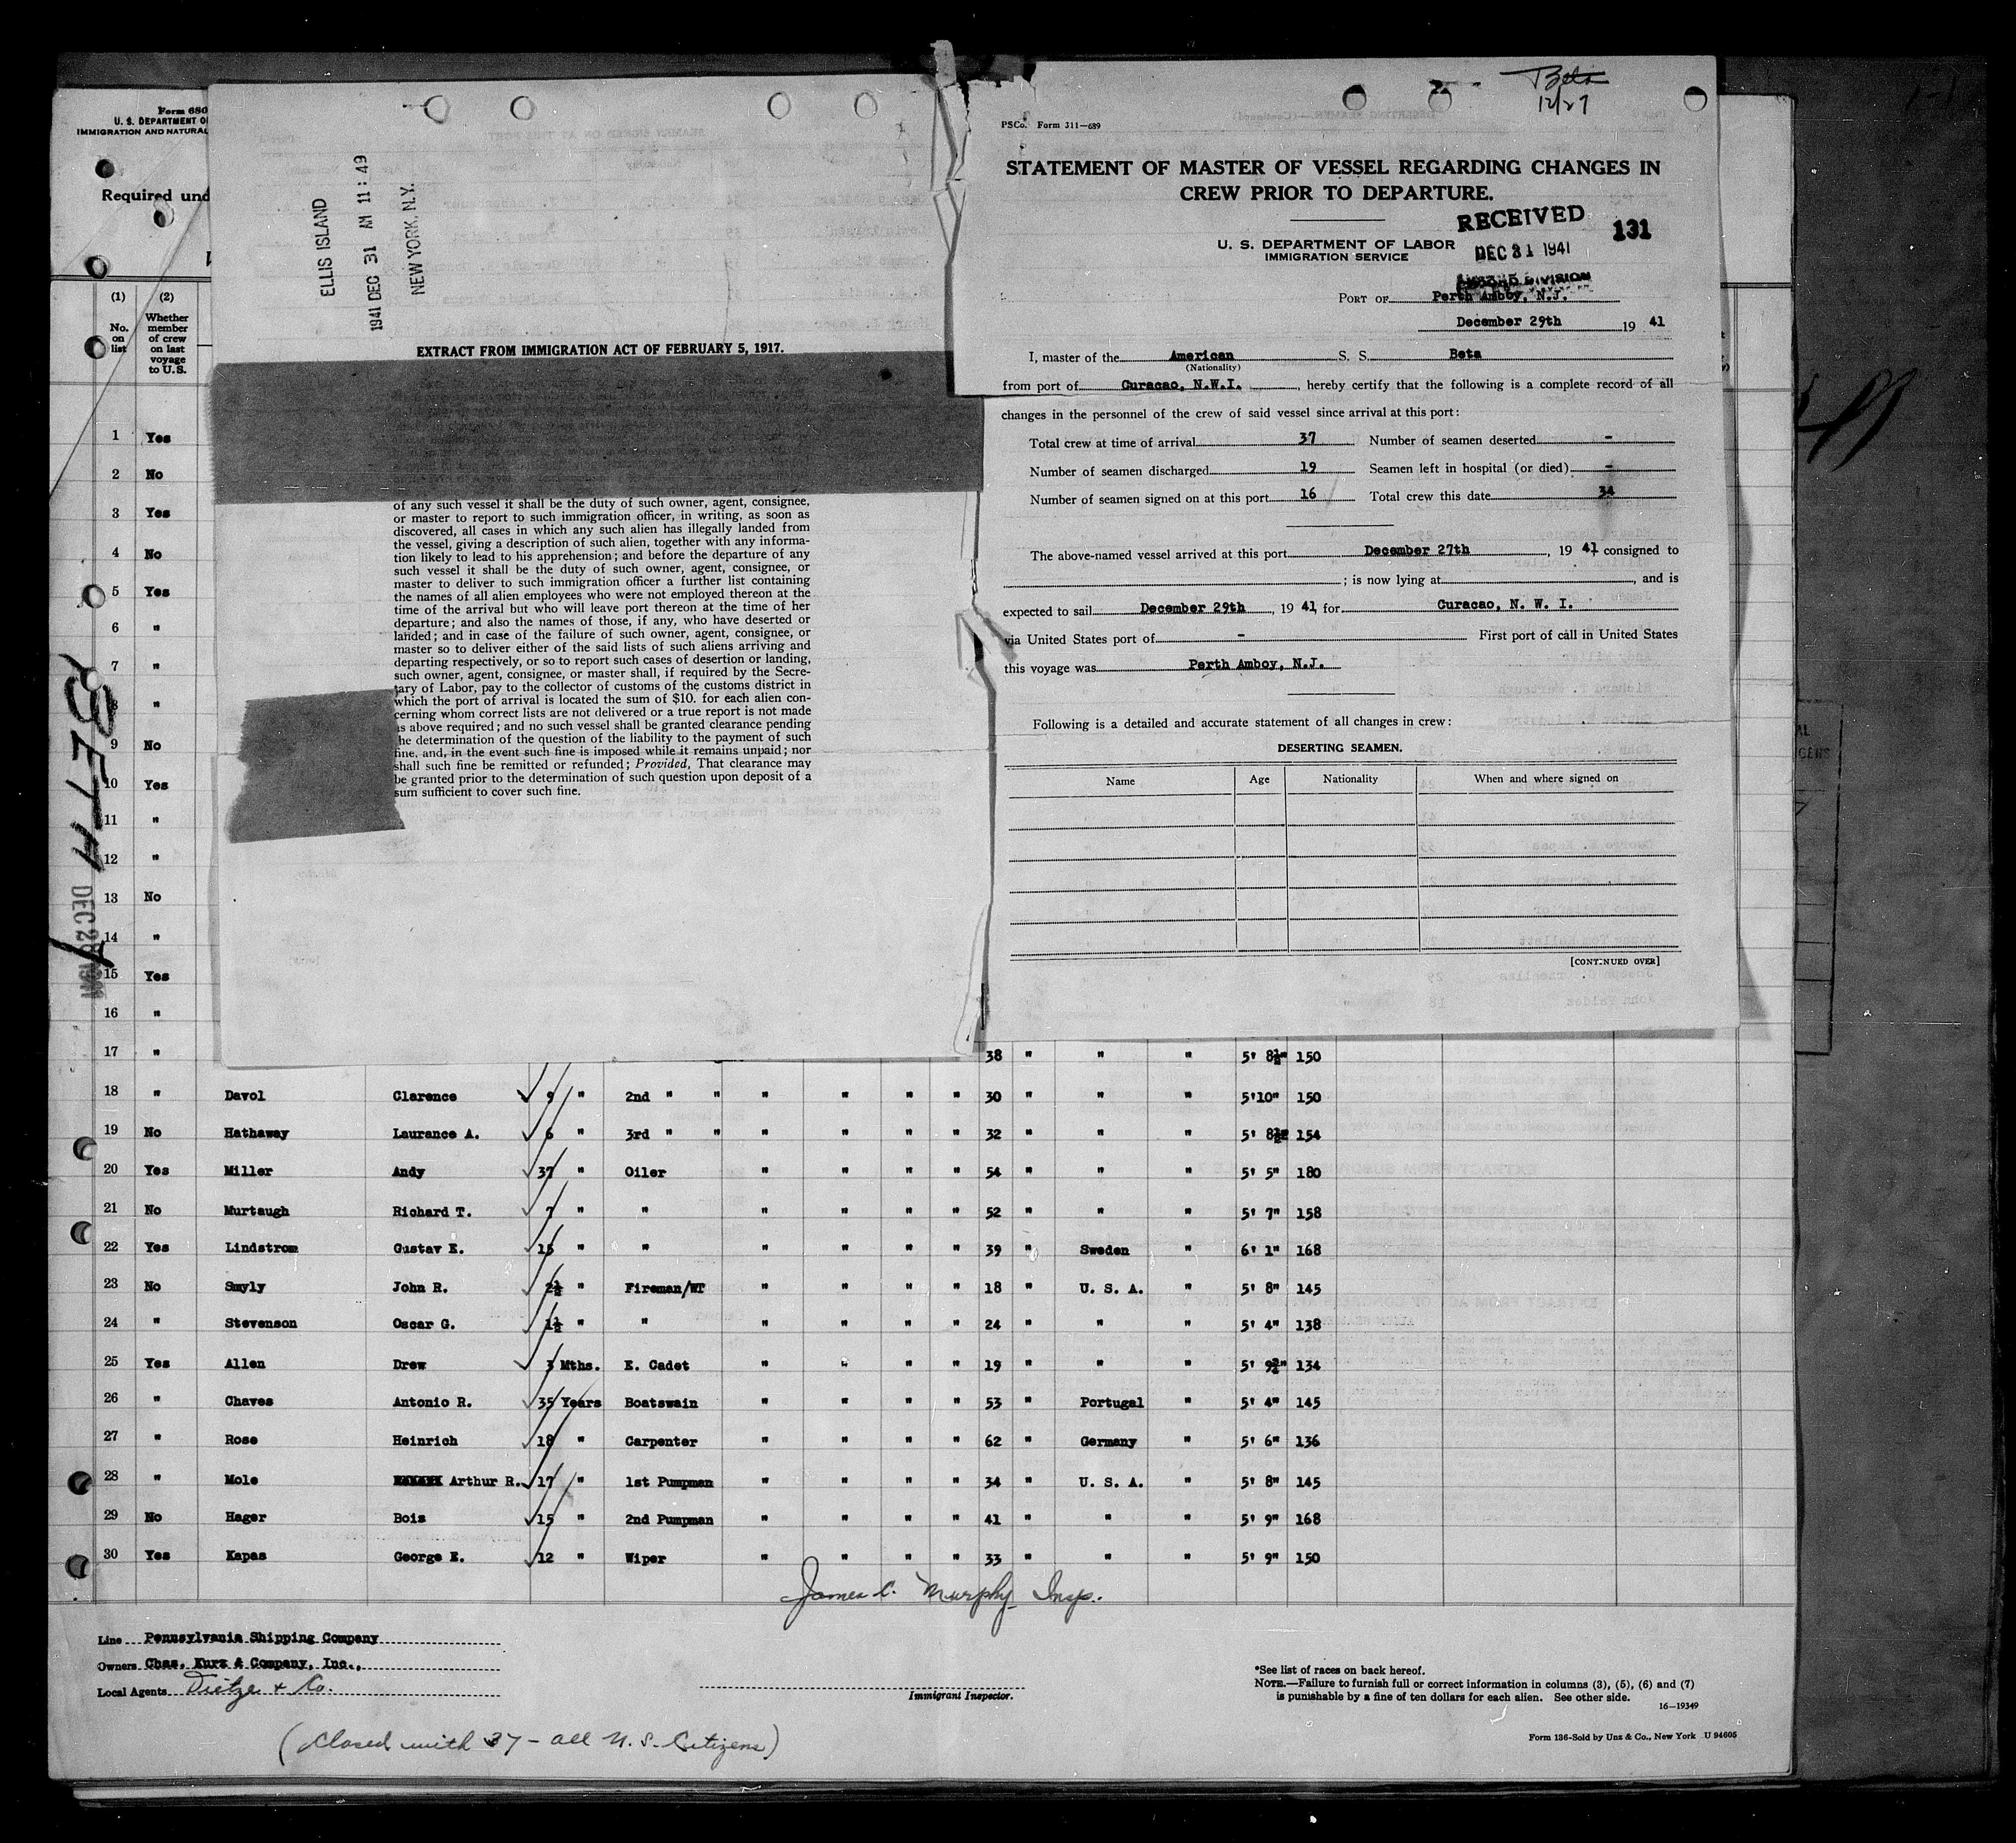 Form 680
U. S. DEPARTMENT O
IMMIGRATION AND NATURAL
Required und
ELLIS ISLAND
1941 DEC 31 AM 11:49
NEW YORK, N.Y.
EXTRACT FROM IMMIGRATION ACT OF FEBRUARY 5, 1917.
of any such vessel it shall be the duty of such owner, agent, consignee,
or master to report to such immigration officer, in writing, as soon as
discovered, all cases in which any such alien has illegally landed from
the vessel, giving a description of such alien, together with any informa-
tion likely to lead to his apprehension; and before the departure of any
such vessel it shall be the duty of such owner, agent, consignee, or
master to deliver to such immigration officer a further list containing
the names of all alien employees who were not employed thereon at the
time of the arrival but who will leave port thereon at the time of her
departure; and also the names of those, if any, who have deserted or
landed; and in case of the failure of such owner, agent, consignee, or
master so to deliver either of the said lists of such aliens arriving and
departing respectively, or so to report such cases of desertion or landing,
such owner, agent, consignee, or master shall, if required by the Secre-
tary of Labor, pay to the collector of customs of the customs district in
which the port of arrival is located the sum of $10. for each alien con-
cerning whom correct lists are not delivered or a true report is not made
as above required; and no such vessel shall be granted clearance pending
the determination of the question of the liability to the payment of such
fine, and, in the event such fine is imposed while it remains unpaid; nor
shall such fine be remitted or refunded; Provided, That clearance may
be granted prior to the determination of such question upon deposit of a
sum sufficient to cover such fine.
Beta
12/27
PSCo. Form 311—689
STATEMENT OF MASTER OF VESSEL REGARDING CHANGES IN
CREW PRIOR TO DEPARTURE.
RECEIVED 131
U. S. DEPARTMENT OF LABOR
IMMIGRATION SERVICE
DEC 31 1941
DIVISION
PORT OF Perth Amboy, N.J.
December 29th 19 41
I, master of the American S. S. Beta
(Nationality)
from port of Curacao, N.W.I. , hereby certify that the following is a complete record of all
changes in the personnel of the crew of said vessel since arrival at this port:
Total crew at time of arrival 37 Number of seamen deserted -
Number of seamen discharged 19 Seamen left in hospital (or died) -
Number of seamen signed on at this port 16 Total crew this date 34
The above-named vessel arrived at this port December 27th , 19 41 consigned to
; is now lying at , and is
expected to sail December 29th , 19 41, for Curacao, N. W. I.
via United States port of - First port of call in United States
this voyage was Perth Amboy, N.J.
Following is a detailed and accurate statement of all changes in crew:
DESERTING SEAMEN.
Name Age Nationality When and where signed on
[CONTINUED OVER]
BETA
DEC 2
(1) (2)
No. on list
Whether member of crew on last voyage to U.S.
1 Yes
2 No
3 Yes
4 No
5 Yes
6 "
7 "
8 "
9 No
10 Yes
11 "
12 "
13 No
14 "
15 Yes
16 "
17 " 38 " " " 5' 8½" 150
18 " Davol Clarence 9 " 2nd " " " " " " 30 " " " 5'10" 150
19 No Hathaway Laurance A. 6 " 3rd " " " " " " 32 " " " 5' 8½" 154
20 Yes Miller Andy 37 " Oiler " " " " 54 " " " 5' 5" 180
21 No Murtaugh Richard T. 7 " " " " " " 52 " " " 5' 7" 158
22 Yes Lindstrom Gustav E. 15 " " " " " " 39 " Sweden " 6' 1" 168
23 No Smyly John R. 2½ " Fireman/WT " " " " 18 " U. S. A. " 5' 8" 145
24 " Stevenson Oscar G. 1½ " " " " " " 24 " " " 5' 4" 138
25 Yes Allen Drew 3 Mths. E. Cadet " " " " 19 " " " 5' 9½" 134
26 " Chaves Antonio R. 35 Years Boatswain " " " " 53 " Portugal " 5' 4" 145
27 " Rose Heinrich 18 " Carpenter " " " " 62 " Germany " 5' 6" 136
28 " Mole Arthur R. 17 " 1st Pumpman " " " " 34 " U. S. A. " 5' 8" 145
29 No Hager Bois 15 " 2nd Pumpman " " " " 41 " " " 5' 9" 168
30 Yes Kapas George E. 12 " Wiper " " " " 33 " " " 5' 9" 150
James C. Murphy Insp.
Line Pennsylvania Shipping Company
Owners Chas. Kurz & Company, Inc.,
Local Agents Dietze & Co.
Immigrant Inspector.
*See list of races on back hereof.
NOTE.—Failure to furnish full or correct information in columns (3), (5), (6) and (7)
is punishable by a fine of ten dollars for each alien. See other side.
16—19349
(Closed with 37 - all U. S. Citizens)
Form 136-Sold by Unz & Co., New York U 94605